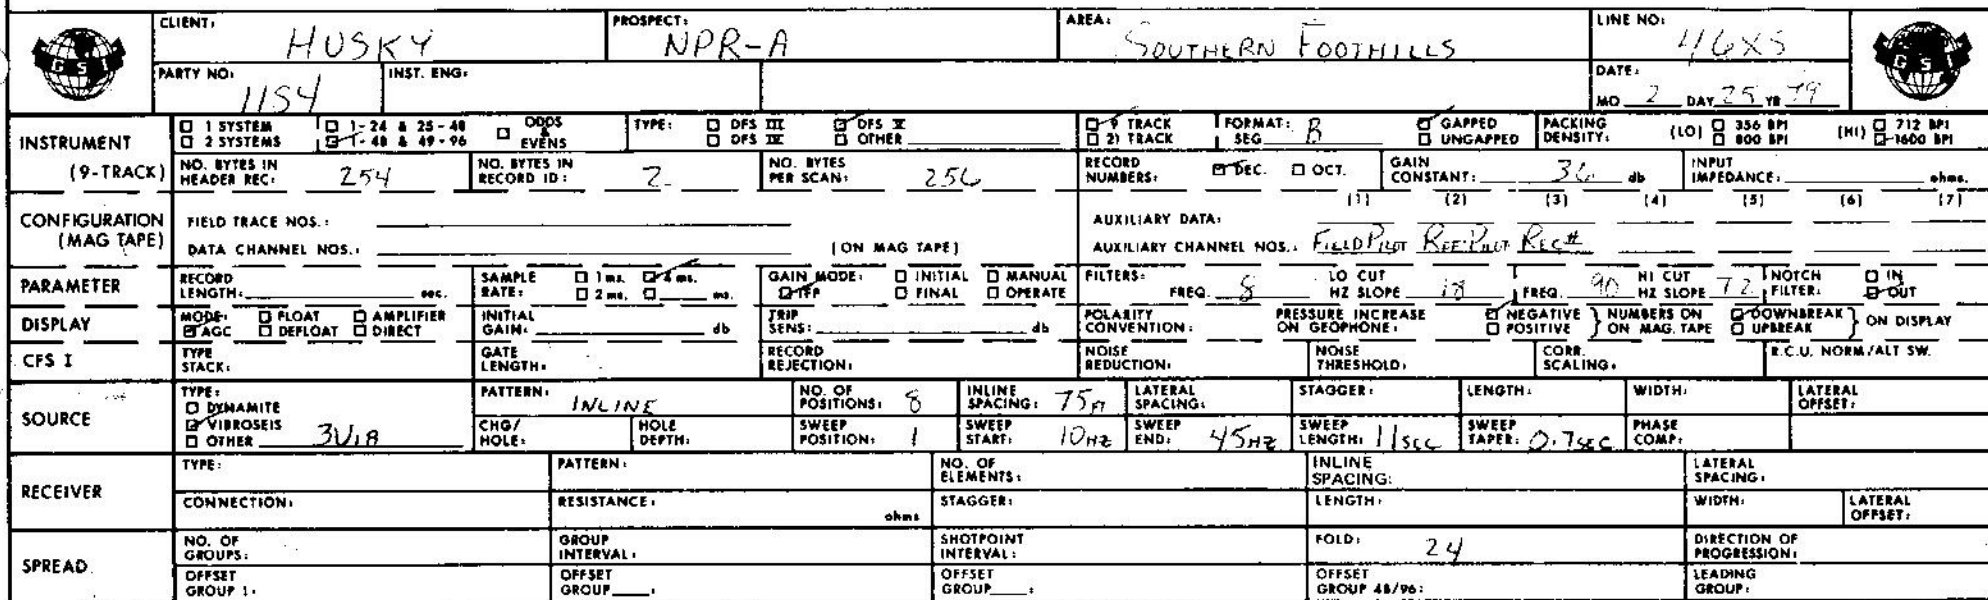 CLIENT: HUSKY PROSPECT: NPR-A AREA: SOUTHERN FOOTHILLS LINE NO: 46XS
GSI GSI
PARTY NO: 1154 INST. ENG: DATE: MO 2 DAY 25 YR 79
INSTRUMENT (9-TRACK)
1 SYSTEM 1-24 & 25-48 ODDS & EVENS TYPE: DFS III DFS V 9 TRACK FORMAT: SEG B GAPPED PACKING DENSITY: (LO) 356 BPI (HI) 712 BPI
2 SYSTEMS 1-48 & 49-96 DFS IV OTHER 21 TRACK UNGAPPED 800 BPI 1600 BPI
NO. BYTES IN HEADER REC: 254 NO. BYTES IN RECORD ID: 2 NO. BYTES PER SCAN: 256 RECORD NUMBERS: DEC. OCT. GAIN CONSTANT: 36 db INPUT IMPEDANCE: ohms.
CONFIGURATION (MAG TAPE)
FIELD TRACE NOS.: AUXILIARY DATA: (1) (2) (3) (4) (5) (6) (7)
DATA CHANNEL NOS.: (ON MAG TAPE) AUXILIARY CHANNEL NOS.: FIELD PILOT REF. PILOT REC#
PARAMETER RECORD LENGTH: sec. SAMPLE RATE: 1 ms. 4 ms. 2 ms. ms. GAIN MODE: INITIAL MANUAL IFP FINAL OPERATE FILTERS: FREQ. 8 LO CUT HZ SLOPE 18 FREQ. 90 HI CUT HZ SLOPE 72 NOTCH FILTER: IN OUT
DISPLAY MODE: FLOAT AMPLIFIER AGC DEFLOAT DIRECT INITIAL GAIN: db TRIP SENS: db POLARITY CONVENTION: PRESSURE INCREASE ON GEOPHONE: NEGATIVE POSITIVE NUMBERS ON ON MAG. TAPE DOWNBREAK UPBREAK ON DISPLAY
CFS I TYPE STACK: GATE LENGTH: RECORD REJECTION: NOISE REDUCTION: NOISE THRESHOLD: CORR. SCALING: R.C.U. NORM/ALT SW.
SOURCE TYPE: DYNAMITE VIBROSEIS OTHER 3VIB PATTERN: INLINE NO. OF POSITIONS: 8 INLINE SPACING: 75 FT LATERAL SPACING: STAGGER: LENGTH: WIDTH: LATERAL OFFSET:
CHG/ HOLE: HOLE DEPTH: SWEEP POSITION: 1 SWEEP START: 10HZ SWEEP END: 45HZ SWEEP LENGTH: 11SEC SWEEP TAPER: 0.7SEC PHASE COMP:
RECEIVER TYPE: PATTERN: NO. OF ELEMENTS: INLINE SPACING: LATERAL SPACING:
CONNECTION: RESISTANCE: ohms STAGGER: LENGTH: WIDTH: LATERAL OFFSET:
SPREAD NO. OF GROUPS: GROUP INTERVAL: SHOTPOINT INTERVAL: FOLD: 24 DIRECTION OF PROGRESSION:
OFFSET GROUP 1: OFFSET GROUP : OFFSET GROUP : OFFSET GROUP 48/96: LEADING GROUP: